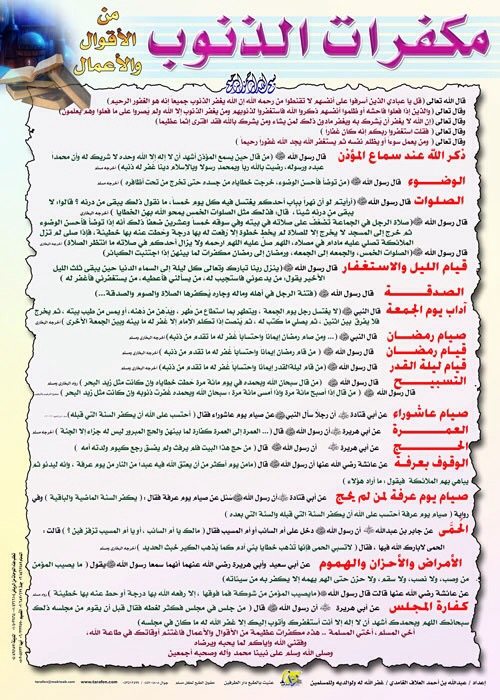 مكفرات الذنوب
من
الأقوال
والأعمال
قال الله تعالى (قل يا عبادي الذين أسرفوا على أنفسهم لا تقنطوا من رحمة الله إن الله يغفر الذنوب جميعا إنه هو الغفور الرحيم)
وقال تعالى (والذين إذا فعلوا فاحشة أو ظلموا أنفسهم ذكروا الله فاستغفروا لذنوبهم ومن يغفر الذنوب إلا الله ولم يصروا على ما فعلوا وهم يعلمون)
وقال تعالى (إن الله لا يغفر أن يشرك به ويغفر مادون ذلك لمن يشاء ومن يشرك بالله فقد افترى إثما عظيما)
وقال تعالى ( فقلت استغفروا ربكم إنه كان غفارا )
وقال تعالى ( ومن يعمل سوءا أو يظلم نفسه ثم يستغفر الله يجد الله غفورا رحيما )
ذكر الله عند سماع المؤذن قال رسول الله ﷺ ( من قال حين يسمع المؤذن أشهد أن لا إله إلا الله وحده لا شريك له وأن محمدا
عبده ورسوله، رضيت بالله ربا وبمحمد رسولا وبالإسلام دينا غفر له ذنبه)
الوضوء قال رسول الله ﷺ (من توضأ فأحسن الوضوء، خرجت خطاياه من جسده حتى تخرج من تحت أظافره )
الصلوات قال رسول الله ﷺ (أرأيتم لو أن نهرا بباب أحدكم يغتسل فيه كل يوم خمسا، ما تقول ذلك يبقي من درنه ؟ قالوا: لا
يبقي من درنه شيئا ، قال: فذلك مثل الصلوات الخمس يمحو الله بهن الخطايا )
قال رسول الله ﷺ (صلاة الرجل في الجماعة تضعف على صلاته في بيته وفي سوقه خمسا وعشرين ضعفا ذلك أنه إذا توضأ فأحسن الوضوء
ثم خرج إلى المسجد لا يخرجه إلا للصلاة لم يخط خطوة إلا رفعت له بها درجة وحطت عنه بها خطيئة، فإذا صلى لم تزل
الملائكة تصلي عليه مادام في مصلاه، اللهم صل عليه اللهم ارحمه ولا يزال أحدكم في صلاة ما انتظر الصلاة)
قال رسول الله ﷺ (الصلوات الخمس، والجمعة إلى الجمعة، ورمضان إلى رمضان مكفرات لما بينهن إذا اجتنبت الكبائر)
قيام الليل والاستغفار قال رسول الله ﷺ (ينزل ربنا تبارك وتعالى كل ليلة إلى السماء الدنيا حين يبقى ثلث الليل
الأخير يقول: من يدعوني فأستجيب له، من يسألني فأعطيه، من يستغفرني فأغفر له )
الصدقة قال رسول الله ﷺ (فتنة الرجل في أهله وماله وجاره يكفرها الصلاة والصوم والصدقة...)
آداب يوم الجمعة قال النبي ﷺ (لا يغتسل رجل يوم الجمعة ، ويتطهر بما استطاع من طهر ، ويدهن من دهنه، أو يمس من طيب بيته ، ثم يخرج
فلا يفرق بين اثنين ، ثم يصلي ما كتب له ، ثم ينصت إذا تكلم الإمام إلا غفر له ما بينه وبين الجمعة الأخرى )
صيام رمضان قال النبي ﷺ (... ومن صام رمضان إيمانا واحتسابا غفر له ما تقدم من ذنبه)
قيام رمضان قال رسول الله ﷺ (من قام رمضان إيمانا واحتسابا غفر له ما تقدم من ذنبه)
قيام ليلة القدر قال رسول الله ﷺ (من قام ليلة القدر إيمانا واحتسابا غفر له ما تقدم من ذنبه)
التسبيح قال رسول الله ﷺ ( من قال سبحان الله وبحمده في يوم مائة مرة حطت خطاياه وإن كانت مثل زبد البحر )
قال رسول الله ﷺ ( من قال إذا أصبح مائة مرة وإذا أمسى مائة مرة : سبحان الله وبحمده غفرت ذنوبه وإن كانت أكثر من زبد البحر )
صيام عاشوراء عن أبي قتادة أن رجلا سأل النبي ﷺ عن صيام يوم عاشوراء فقال ( أحتسب على الله أن يكفر السنة التي قبله)
العمرة عن أبي هريرة أن رسول الله ﷺ قال (... العمرة إلى العمرة كفارة لما بينهن والحج المبرور ليس له جزاء إلا الجنة )
الحج عن أبي هريرة أن رسول الله ﷺ قال ( من حج هذا البيت فلم يرفث ولم يفسق رجع كيوم ولدته أمه )
الوقوف بعرفة عن عائشة رضي الله عنها أن رسول الله ﷺ قال (مامن يوم أكثر من أن يعتق الله فيه عبدا من النار من يوم عرفة ، وإنه ليدنو ثم
يباهي بهم الملائكة فيقول : ما أراد هؤلاء )
صيام يوم عرفة لمن لم يحج عن أبي قتادة أن رسول الله ﷺ سئل عن صيام يوم عرفة فقال : (يكفر السنة الماضية والباقية ) وفي
رواية ( صيام يوم عرفة أحتسب على الله أن يكفر السنة التي قبله والسنة التي بعده )
الحمى عن جابر بن عبدالله أن رسول الله ﷺ دخل على أم السائب أو أم المسيب فقال ( مالك يا أم السائب ، أو يا أم المسيب تزفزفين ؟ ) قالت :
الحمى لا بارك الله فيها ، فقال ( لا تسبي الحمى فإنها تذهب خطايا بني آدم كما يذهب الكير خبث الحديد )
الأمراض والأحزان والهموم عن أبي سعيد وأبي هريرة رضي الله عنهما أنهما سمعا رسول الله ﷺ يقول ( ما يصيب المؤمن
من وصب، ولا نصب، ولا سقم، ولا حزن حتى الهم يهمه إلا يكفر به من سيئاته )
عن عائشة رضي الله عنها قالت قال رسول الله ﷺ (مايصيب المؤمن من شوكة فما فوقها ، إلا رفعه الله بها درجة أو حط عنه بها خطيئة )
كفارة المجلس عن أبي هريرة أن رسول الله ﷺ قال ( من جلس في مجلس فكثر لغطه فقال قبل أن يقوم من مجلسه ذلك
سبحانك اللهم وبحمدك أشهد أن لا إله إلا أنت أستغفرك وأتوب إليك إلا غفر الله له ما كان في مجلسه )
أخي المسلم ، أختي المسلمة .. هذه مكفرات عظيمة من الأقوال والأعمال فاغتنم أوقاتك في طاعة الله ،
وفقني الله وإياكم لما يحبه ويرضاه
وصلى الله وسلم على نبينا محمد وآله وصحبه أجمعين
إعداد / عبدالله بن أحمد العلاف الغامدي / غفر الله له ولوالديه وللمسلمين
عنيت بالطبع دار الطرفين
حقوق الطبع لكل مسلم
www.tarafen.com
tarafen@maktoob.com